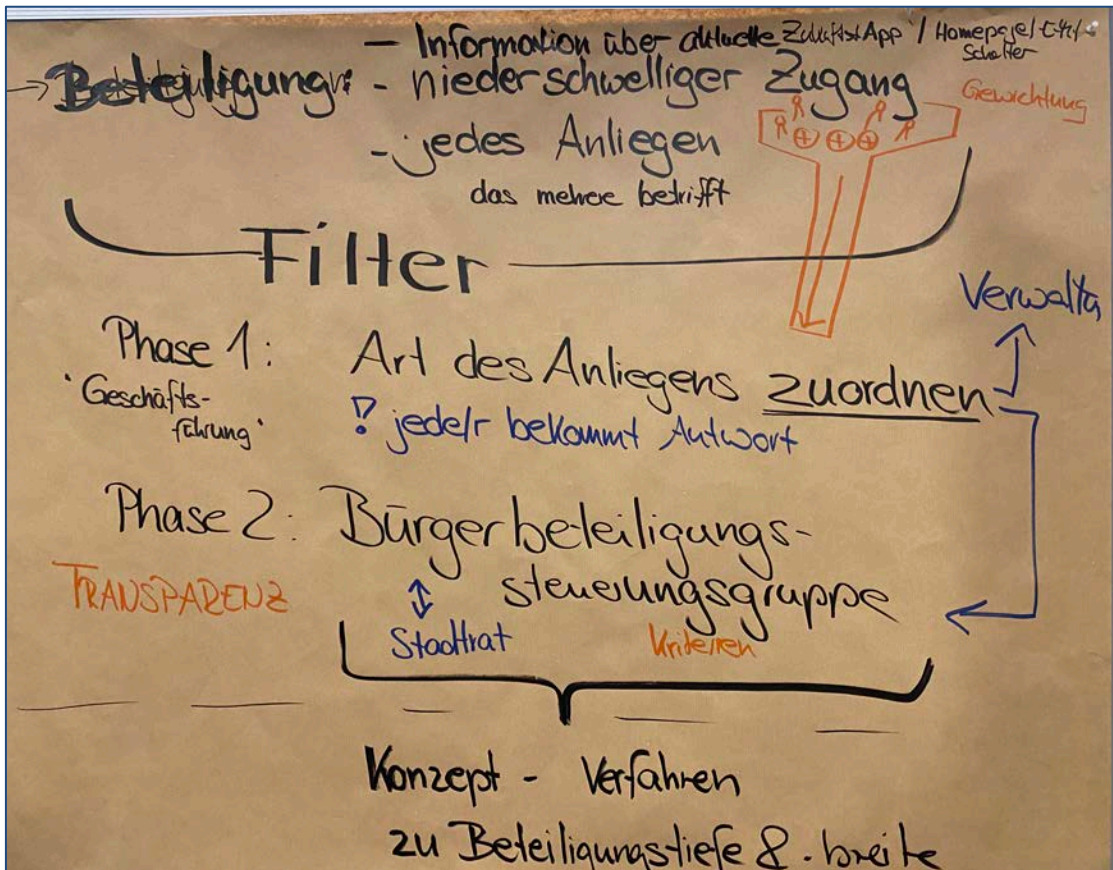 – Information über aktuelle / Homepage/
Schalter
→ Beteiligung: - niederschwelliger Zugang
Gewichtung
- jedes Anliegen
das mehrere betrifft
Filter
Verwaltg
Phase 1: Art des Anliegens zuordnen
'Geschäfts-
führung'
! jede/r bekommt Antwort
Phase 2: Bürgerbeteiligungs-
steuerungsgruppe
TRANSPARENZ
Stadtrat
Kriterien
Konzept - Verfahren
zu Beteiligungstiefe & -breite